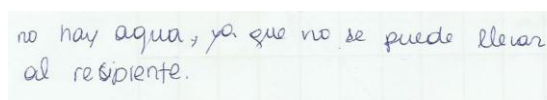 no hay agua, ya que no se puede llevar
al resipiente.